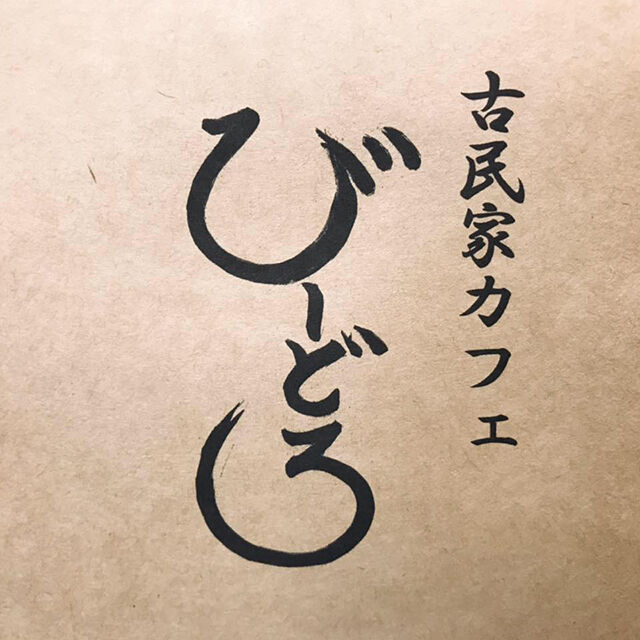 古民家カフェ
びーどろ